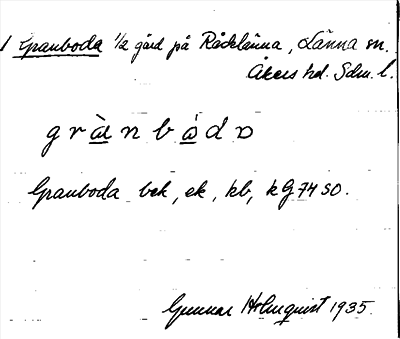 1 Granboda 1/2 gård på Räcklänna, Länna sn.
Åkers hd. Sdm. l.
g r à n b ó d ɒ
Granboda bek, ek, kb, kG 74 SO.
Gunnar Holmquist 1935.